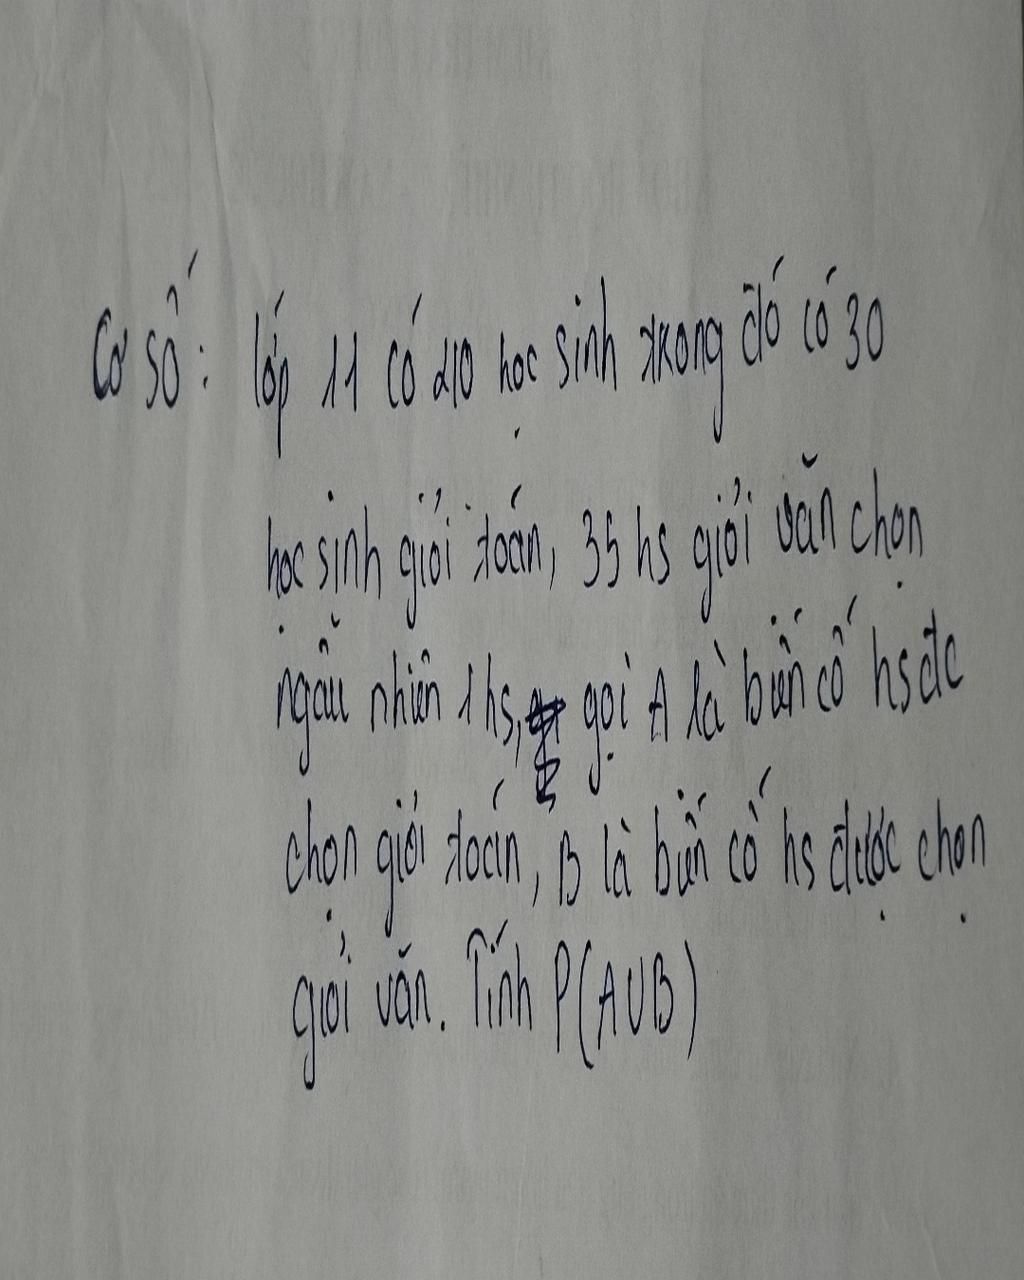 Cơ số: lớp 11 có 210 học sinh trong đó có 30
học sinh giỏi toán, 35 hs giỏi văn chọn
ngẫu nhiên 1 hs, gọi A là biến cố hs đc
chọn giỏi toán, B là biến cố hs được chọn
giỏi văn. Tính P(AUB)